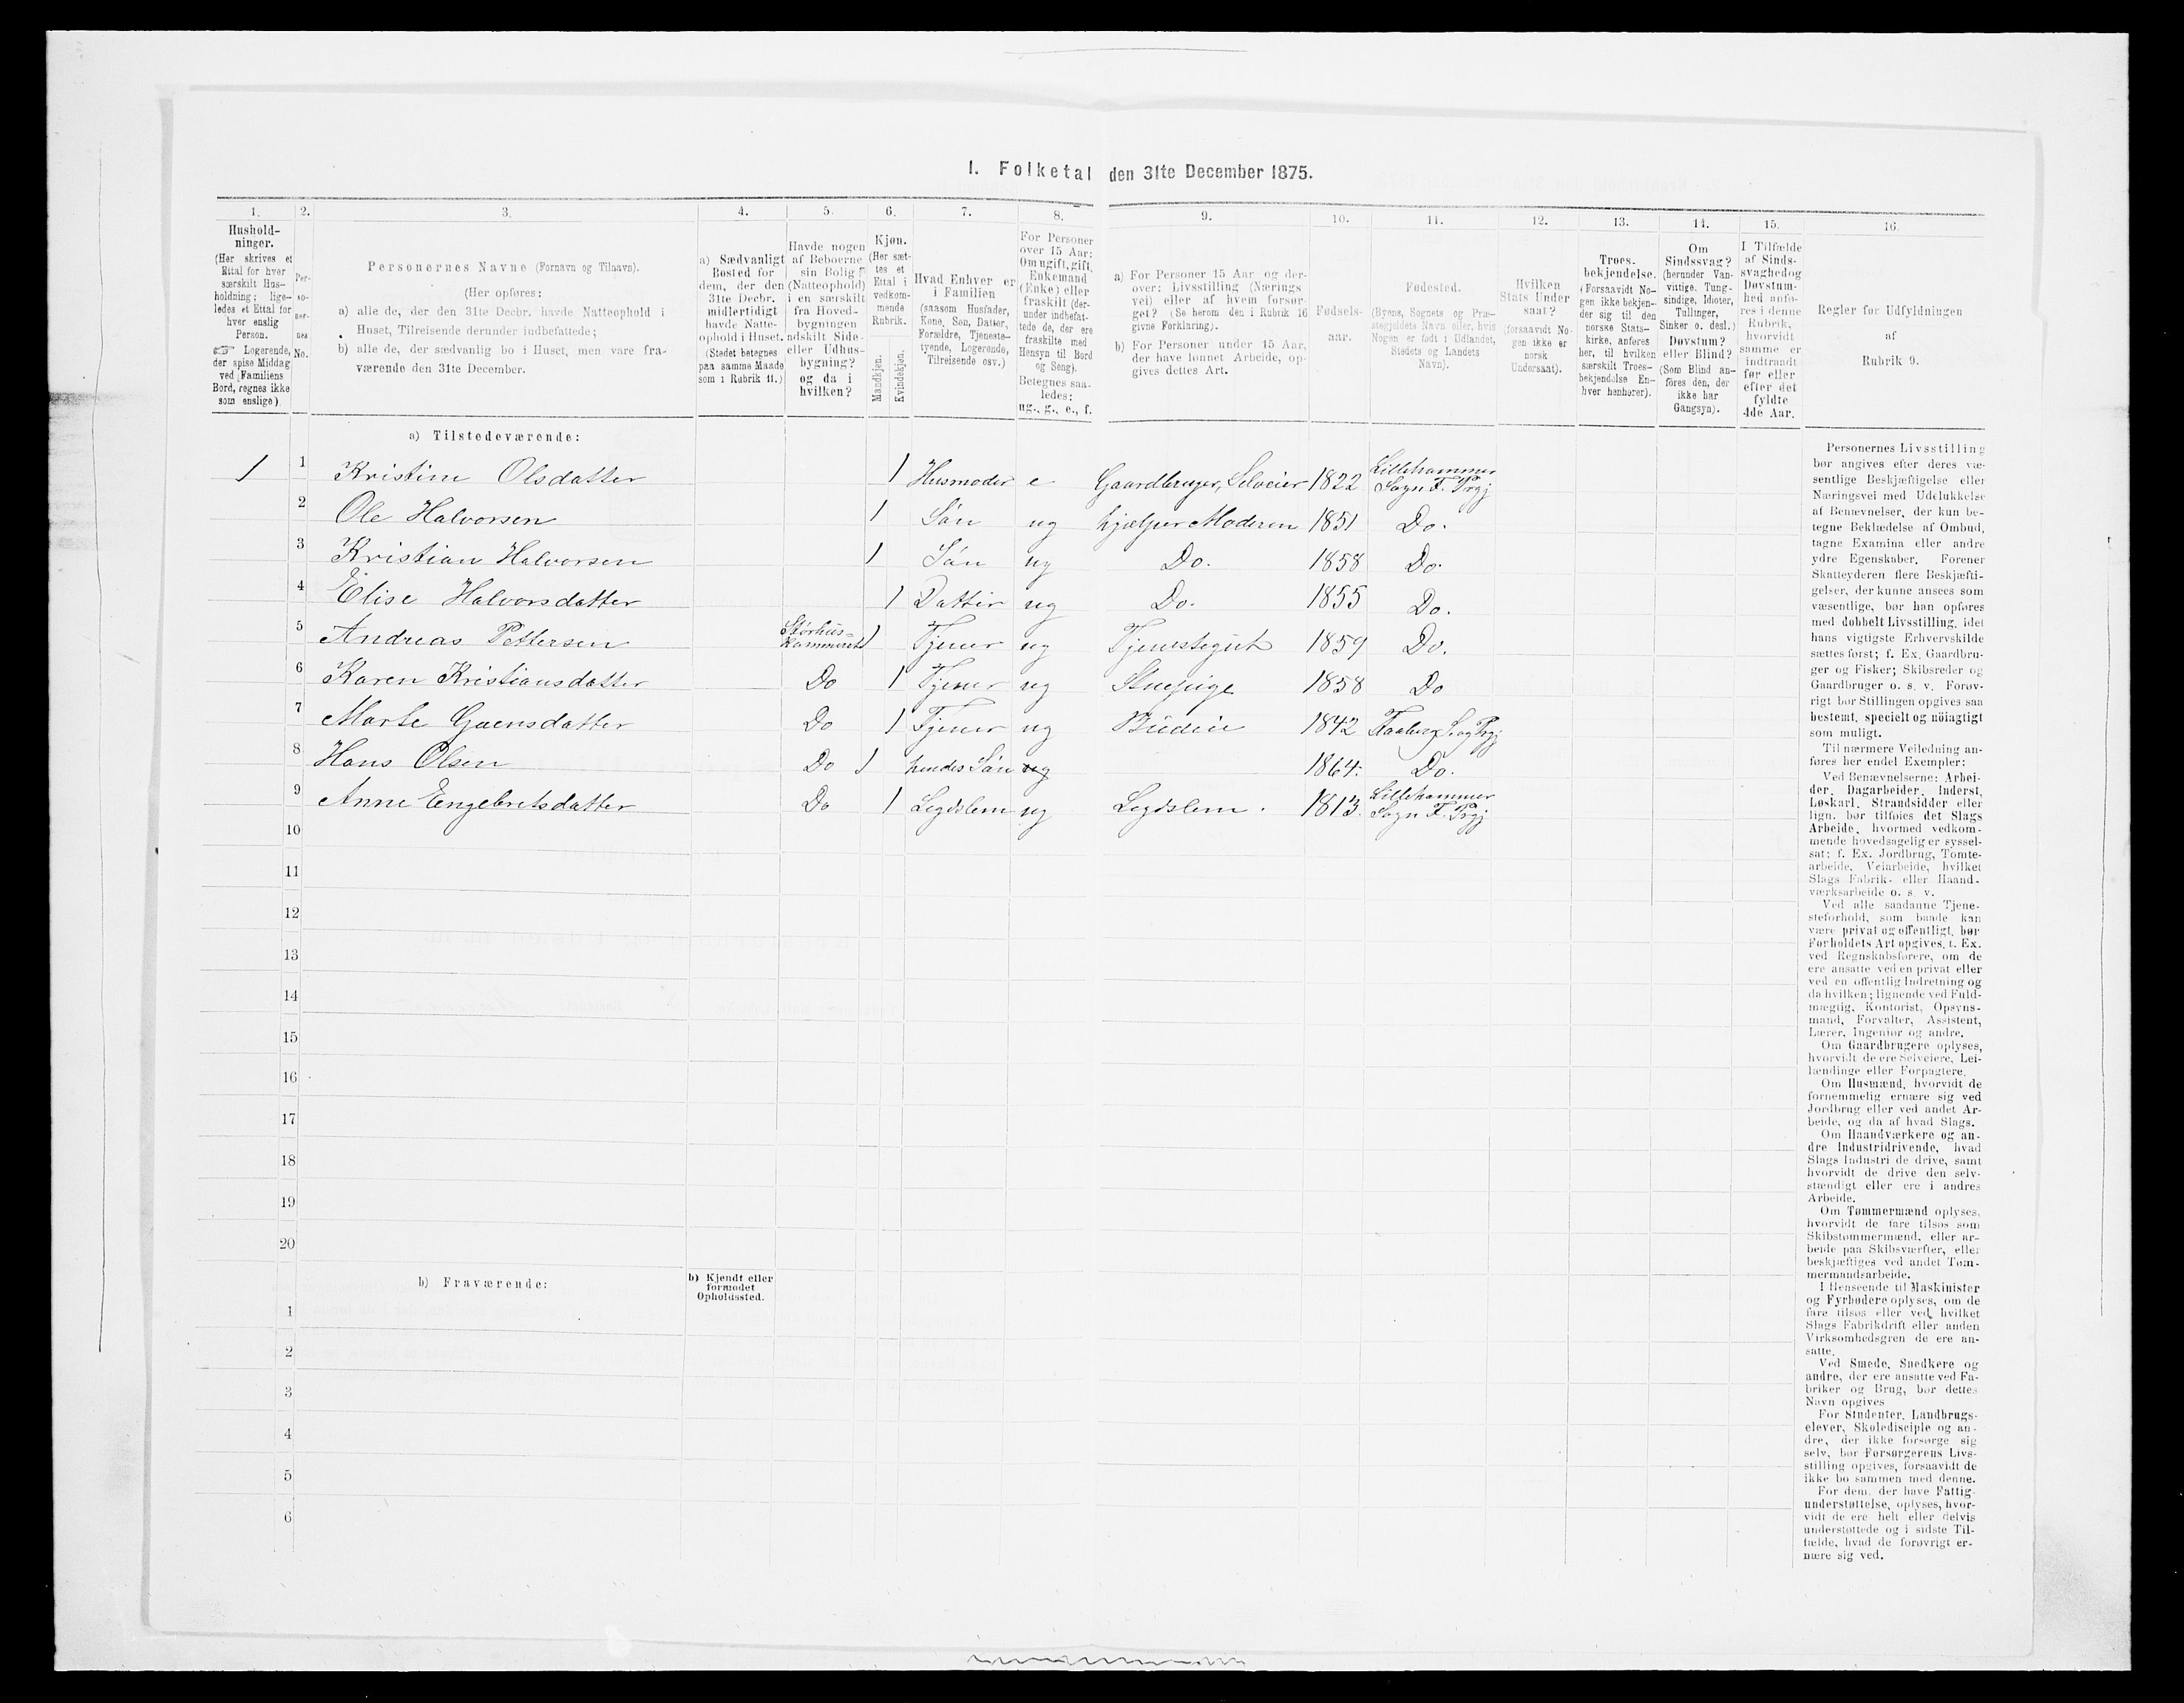 I. Folketal den 31te December 1875.
1. 2. 3. 4. 5. 6. 7. 8. 9. 10. 11. 12. 13. 14. 15. 16.
Hushold-
ninger.
(Her skrives et
Ettal for hver
særskilt Hus-
holdning; lige-
ledes et Ettal for
hver enslig
Person.
☞ Logerende,
der spise Middag
ved Familiens
Bord, regnes ikke
som enslige).
Per-
so-
ner-
nes
No.
Personernes Navne (Fornavn og Tilnavn).
(Her opføres:
a) alle de, der den 31te Decbr. havde Natteophold i
Huset, Tilreisende derunder indbefattede;
b) alle de, der sædvanlig bo i Huset, men vare fra-
værende den 31te December.
a) Sædvanligt
Bosted for
dem, der den
31te Decbr.
midlertidigt
havde Natte-
ophold i Huset.
(Stedet betegnes
paa samme Maade
som i Rubrik 11.)
Havde nogen
af Beboerne
sin Bolig
(Natteophold)
i en særskilt
fra Hoved-
bygningen
adskilt Side-
eller Udhus-
bygning?
og da i
hvilken?
Kjøn.
(Her sæt-
tes et
Ettal i
vedkom-
mende
Rubrik.
Mandkjøn.
Kvindekjøn.
Hvad Enhver er
i Familien
(saasom Husfader,
Kone, Søn, Datter,
Forældre, Tjeneste-
tyende, Logerende,
Tilreisende osv.)
For Personer
over 15 Aar:
Om ugift, gift,
Enkemand
(Enke) eller
fraskilt (der-
under indbefat-
tede de, der ere
fraskilte med
Hensyn til Bord
og Seng).
Betegnes saa-
ledes:
ug., g., e., f.
a) For Personer 15 Aar og der-
over: Livsstilling (Nærings
vei) eller af hvem forsør-
get? (Se herom den i Rubrik 16
givne Forklaring).
b) For Personer under 15 Aar,
der have lønnet Arbeide, op-
gives dettes Art.
Fødsels-
aar.
Fødested.
(Byens, Sognets og Præ-
stegjeldets Navn eller, hvis
Nogen er født i Udlandet,
Stedets og Landets
Navn).
Hvilken
Stats Under
saat?
(forsaavidt No-
gen ikke er
norsk
Undersaat).
Troes-
bekjendelse.
(Forsaavidt No-
gen ikke bekjen-
der sig til den
norske Stats-
kirke, anføres
her, til hvilken
særskilt Troes-
bekjendelse En-
hver henhører).
Om
Sindssvag?
(herunder Van-
vittige, Tung-
sindige, Idioter,
Tullinger,
Sinker o. desl.)
Døvstum?
eller Blind?
(Som Blind an-
føres den, der
ikke har
Gangsyn).
I Tilfælde
af Sinds-
svaghed og
Døvstum-
hed anfø-
res i denne
Rubrik,
hvorvidt
samme er
indtraadt
før eller
efter det
fyldte
4de Aar.
Regler for Udfyldningen
af
Rubrik 9.
a) Tilstedeværende:
1 1 Kristine Olsdatter 1 Husmoder e Gaardbruger, Selveier 1822 Lillehammer
Sogn F. Prgj
2 Ole Halvorsen 1 Søn ug hjælper Moderen 1851 Do.
3 Kristian Halvorsen 1 Søn ug Do. 1858 Do.
4 Elise Halvorsdatter 1 Datter ug Do. 1855 Do.
5 Andreas Pettersen Størhus=
kammeret 1 Tjener ug Tjenestegut 1859 Do.
6 Karen Kristiansdatter Do 1 Tjener ug Stuepige 1858 Do
7 Marte Guensdatter Do 1 Tjener ug Budeie 1842 Faaberg S. og Prgj
8 Hans Olsen Do 1 hendes Søn ug 1864. Do.
9 Anne Engebretsdatter Do 1 Legdslem ug Legdslem. 1813. Lillehammer
Sogn F. Prgj
10
11
12
13
14
15
16
17
18
19
20
b) Fraværende:
b) Kjendt eller
formodet
Opholdssted.
1
2
3
4
5
6
Personernes Livsstilling
bør angives efter deres væ-
sentlige Beskjæftigelse eller
Næringsvei med Udelukkelse
af Benævnelser, der kun be-
tegne Beklædelse af Ombud,
tagne Examina eller andre
ydre Egenskaber. Forener
Skatteyderen flere Beskjæfti-
gelser, der kunne ansees som
væsentlige, bør han opføres
med dobbelt Livsstilling, idet
hans vigtigste Erhvervskilde
sættes først; f. Ex. Gaardbru-
ger og Fisker; Skibsreder og
Gaardbruger o. s. v. Forøv-
rigt bør Stillingen opgives saa
bestemt, specielt og nöiagtigt
som muligt.
Til nærmere Veiledning an-
føres her endel Exempler:
Ved Benævnelserne: Arbei-
der, Dagarbeider, Inderst,
Løskarl, Strandsidder eller
lign. bør tilføies det Slags
Arbeide, hvormed vedkom-
mende hovedsagelig er syssel-
sat; f. Ex. Jordbrug, Tomte-
arbeide, Veiarbeide, hvilket
Slags Fabrik- eller Haand-
værksarbeide o. s. v.
Ved alle saadanne Tjene-
steforhold, som baade kan
være privat og offentligt, bør
Forholdets Art opgives, t. Ex.
ved Regnskabsførere, om de
ere ansatte ved en privat eller
ved en offentlig Indretning og
da hvilken; lignende ved Fuld-
mægtig, Kontorist, Opsyns-
mand, Forvalter, Assistent,
Lærer, Ingeniør og andre.
Om Gaardbrugere oplyses,
hvorvidt de ere Selveiere, Lei-
lændinge eller Forpagtere.
Om Husmænd, hvorvidt de
fornemmelig ernære sig ved
Jordbrug eller ved andet Ar-
beide, og da af hvad Slags.
Om Haandværkere og an-
dre Industridrivende, hvad
Slags Industri de drive, samt
hvorvidt de drive den selv-
stændigt eller ere i andres
Arbeide.
Om Tømmermænd oplyses,
hvorvidt de fare tilsøs som
Skibstømmermænd, eller ar-
beide paa Skibsværfter, eller
beskjæftiges ved andet Tøm-
mermandsarbeide.
I Henseende til Maskinister
og Fyrbødere oplyses, om de
fare tilsøs eller ved hvilket
Slags Fabrikdrift eller anden
Virksomhedsgren de ere an-
satte.
Ved Smede, Snedkere og
andre, der ere ansatte ved Fa-
briker og Brug, bør dettes
Navn opgives
For Studenter, Landbrugs-
elever, Skoledisciple og an-
dre, der ikke forsørge sig
selv, bør Forsørgerens Livs-
stilling opgives, forsaavidt de
ikke bo sammen med denne.
For dem, der have Fattig-
understøttelse, oplyses, hvor-
vidt de ere helt eller delvis
understøttede og i sidste Til-
fælde, hvad de forøvrigt er-
nære sig ved.